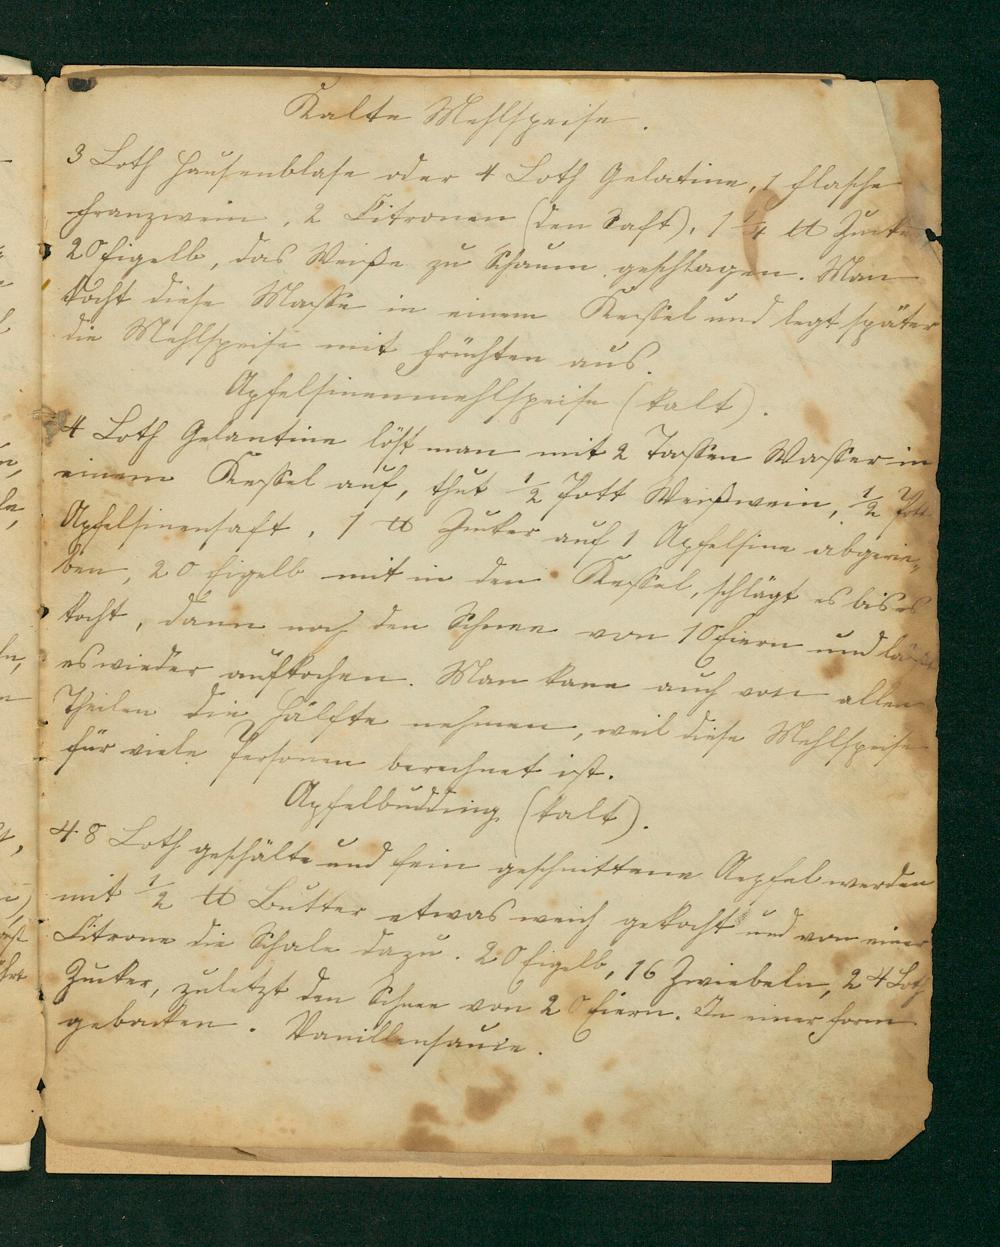 Kalte Mehlspeise.
3 Loth Hausenblase oder 4 Loth Gelatine, 1 Flasche
Franzwein, 2 Citronen (den Saft), 1 1/4 ℔ Zucker
20 Eigelb, das Weiße zu Schaum geschlagen. Man
kocht diese Masse in einem Kessel und legt später
die Mehlspeise mit Früchten aus.
Apfelsinenmehlspeise (kalt).
4 Loth Gelantine löst man mit 2 Tassen Wasser in
einem Kessel auf, thut 1/2 Pott Weißwein, 1/2 Pott
Apfelsinensaft, 1 ℔ Zucker auf 1 Apfelsine abgerie-
ben, 20 Eigelb mit in den Kessel, schlägt es bis es
kocht, dann noch den Schnee von 10 Eiern und läßt
es wieder aufkochen. Man kann auch von allen
Theilen die Hälfte nehmen, weil diese Mehlspeise
für viele Personen berechnet ist.
Apfelbudding (kalt).
48 Loth geschälte und fein geschnittene Aepfel werden
mit 1/2 ℔ Butter etwas weich gekocht und von einer
Citrone die Schale dazu. 20 Eigelb, 16 Zwiebeln, 24 Loth
Zucker, zuletzt den Schnee von 20 Eiern. In einer Form
gebacken. Vanillensauce.